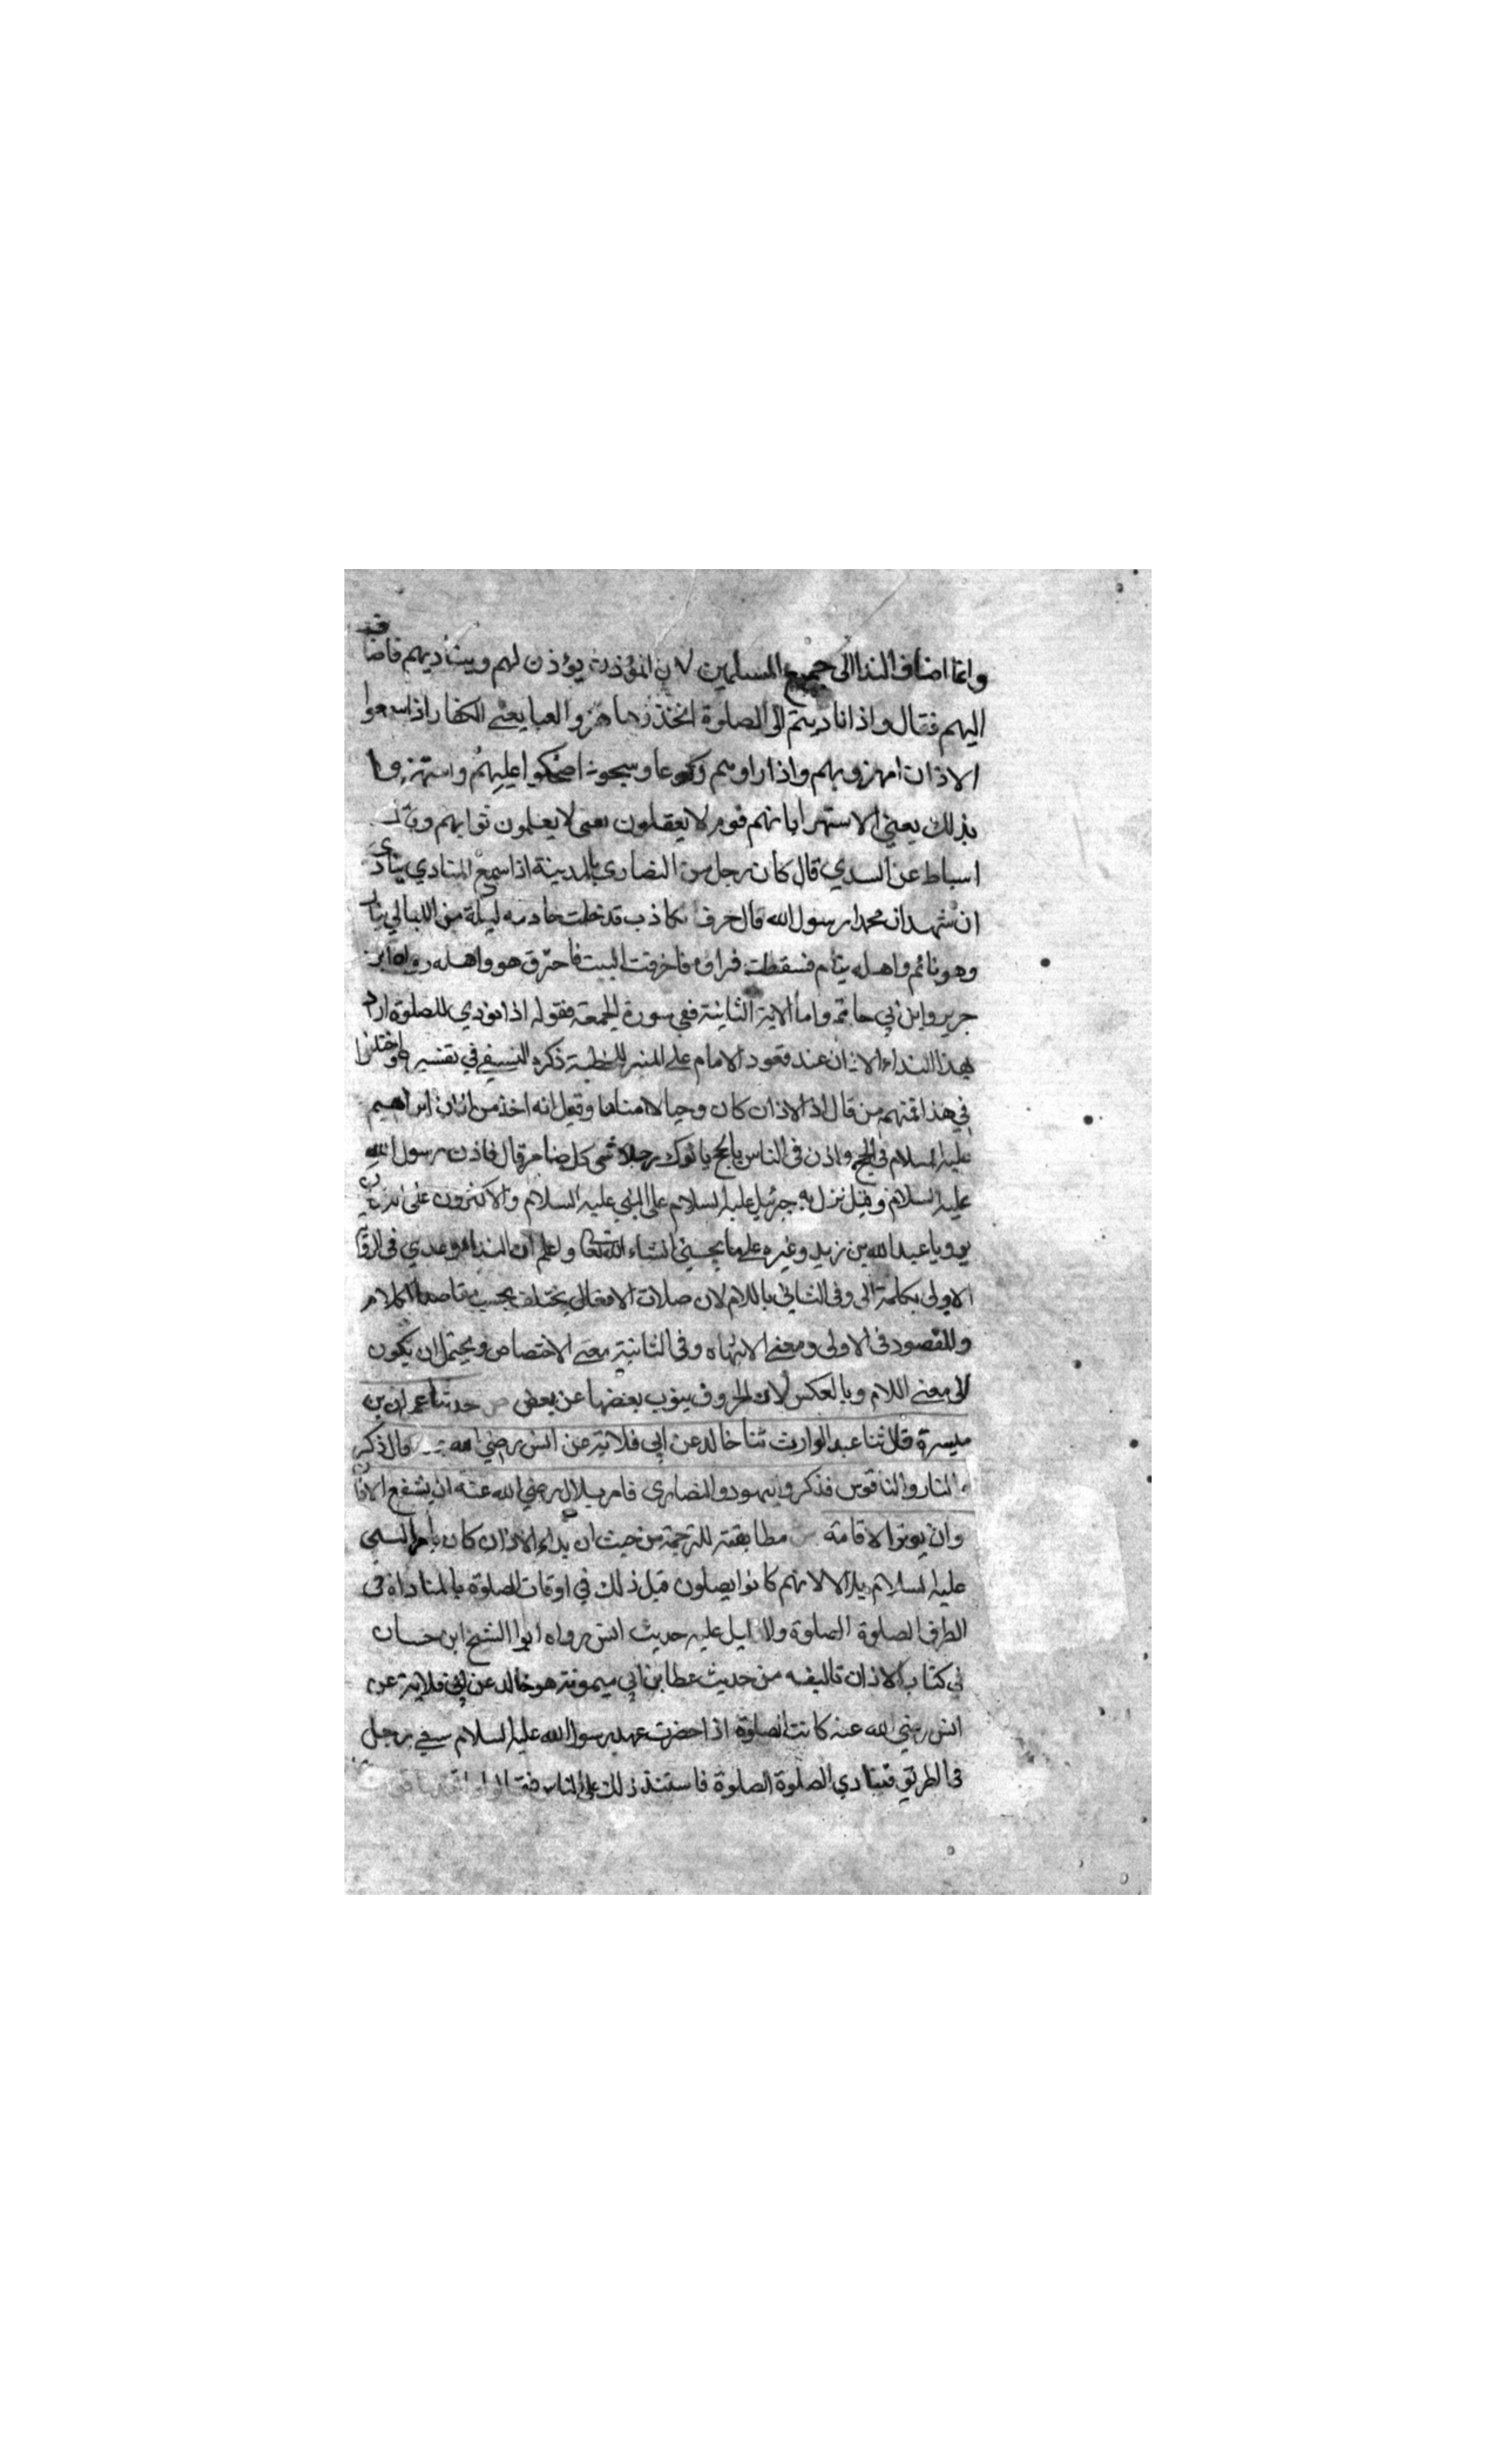 وانما اضاف الندا الى جميع المسلمين لان المؤذن يؤذن لهم ويناديهم فاضاف
اليهم فقال واذا ناديتم الى الصلوة اتخذوها هزوا ولعبا يعني الكفار اذا سمعوا
الاذان واذا راوهم ركوعا وسجودا ضحكوا عليهم واستهزوا
بذلك يعني الاستهزا بانهم قوم لا يعقلون يعني لا يعلمون ثوابهم
اسباط عن السدي قال كان رجل من النصارى بالمدينة اذا سمع المنادي ينادي
اشهد ان محمدا رسول الله قال حرق الكاذب فدخلت خادمه ليلة من الليالي بنار
وهو نائم واهله ينام فسقطت فاحرقت البيت فاحترق هو واهله رواه ابن
جرير وابن ابي حاتم واما الاية الثانية ففي سورة الجمعة فقوله اذا نودي للصلوة اراد
بهذا النداء الاذان عند قعود الامام على المنبر للخطبة ذكره النسفي في تفسيره واختلفوا
في هذا فمنهم من قال ان الاذان كان وحيا لا مناما وقيل انه اخذ من اذان ابراهيم
عليه السلام في الحج واذن في الناس بالحج ياتوك رجالا وعلى كل ضامر قال فاذن رسول الله
عليه السلام وقيل نزل به جبرئيل عليه السلام على النبي عليه السلام والاكثرون على انه
برويا عبد الله بن زيد وغيره على ما يجيئ انشاء الله تعالى واعلم ان النداء عدي في
الاولى بكلمة الى وفي الثاني باللام لان صلات الافعال يختلف بحسب مقاصد الكلام
والمقصود في الاولى معنى الانتهاء وفي الثانية معنى الاختصاص ويحتمل ان يكون
الى معنى اللام وبالعكس لان الحروف ينوب بعضها عن بعض ص حدثنا عمران بن
ميسرة قال ثنا عبد الوارث ثنا خالد عن ابي قلابة عن انس رضي الله قال ذكروا
النار والناقوس فذكروا اليهود والنصارى فامر بلال رضي الله عنه ان يشفع الاذان
وان يوتر الاقامة مطابقته للترجمة من حيث ان بداء الاذان كان بامر النبي
عليه السلام بلالا لانهم كانوا يصلون قبل ذلك في اوقات الصلوة بالمناداة في
الطرق الصلوة الصلوة والدليل عليه حديث انس رواه ابوا الشيخ ابن حسان
في كتاب الاذان تاليفه من حديث عطا بن ابي ميمونة هو خالد عن ابي قلابة عن
انس رضي الله عنه كانت الصلوة اذا حضرت عهد رسول الله عليه السلام سعى رجل
في الطريق فينادي الصلوة الصلوة فاستند ذلك على الناس فقالوا